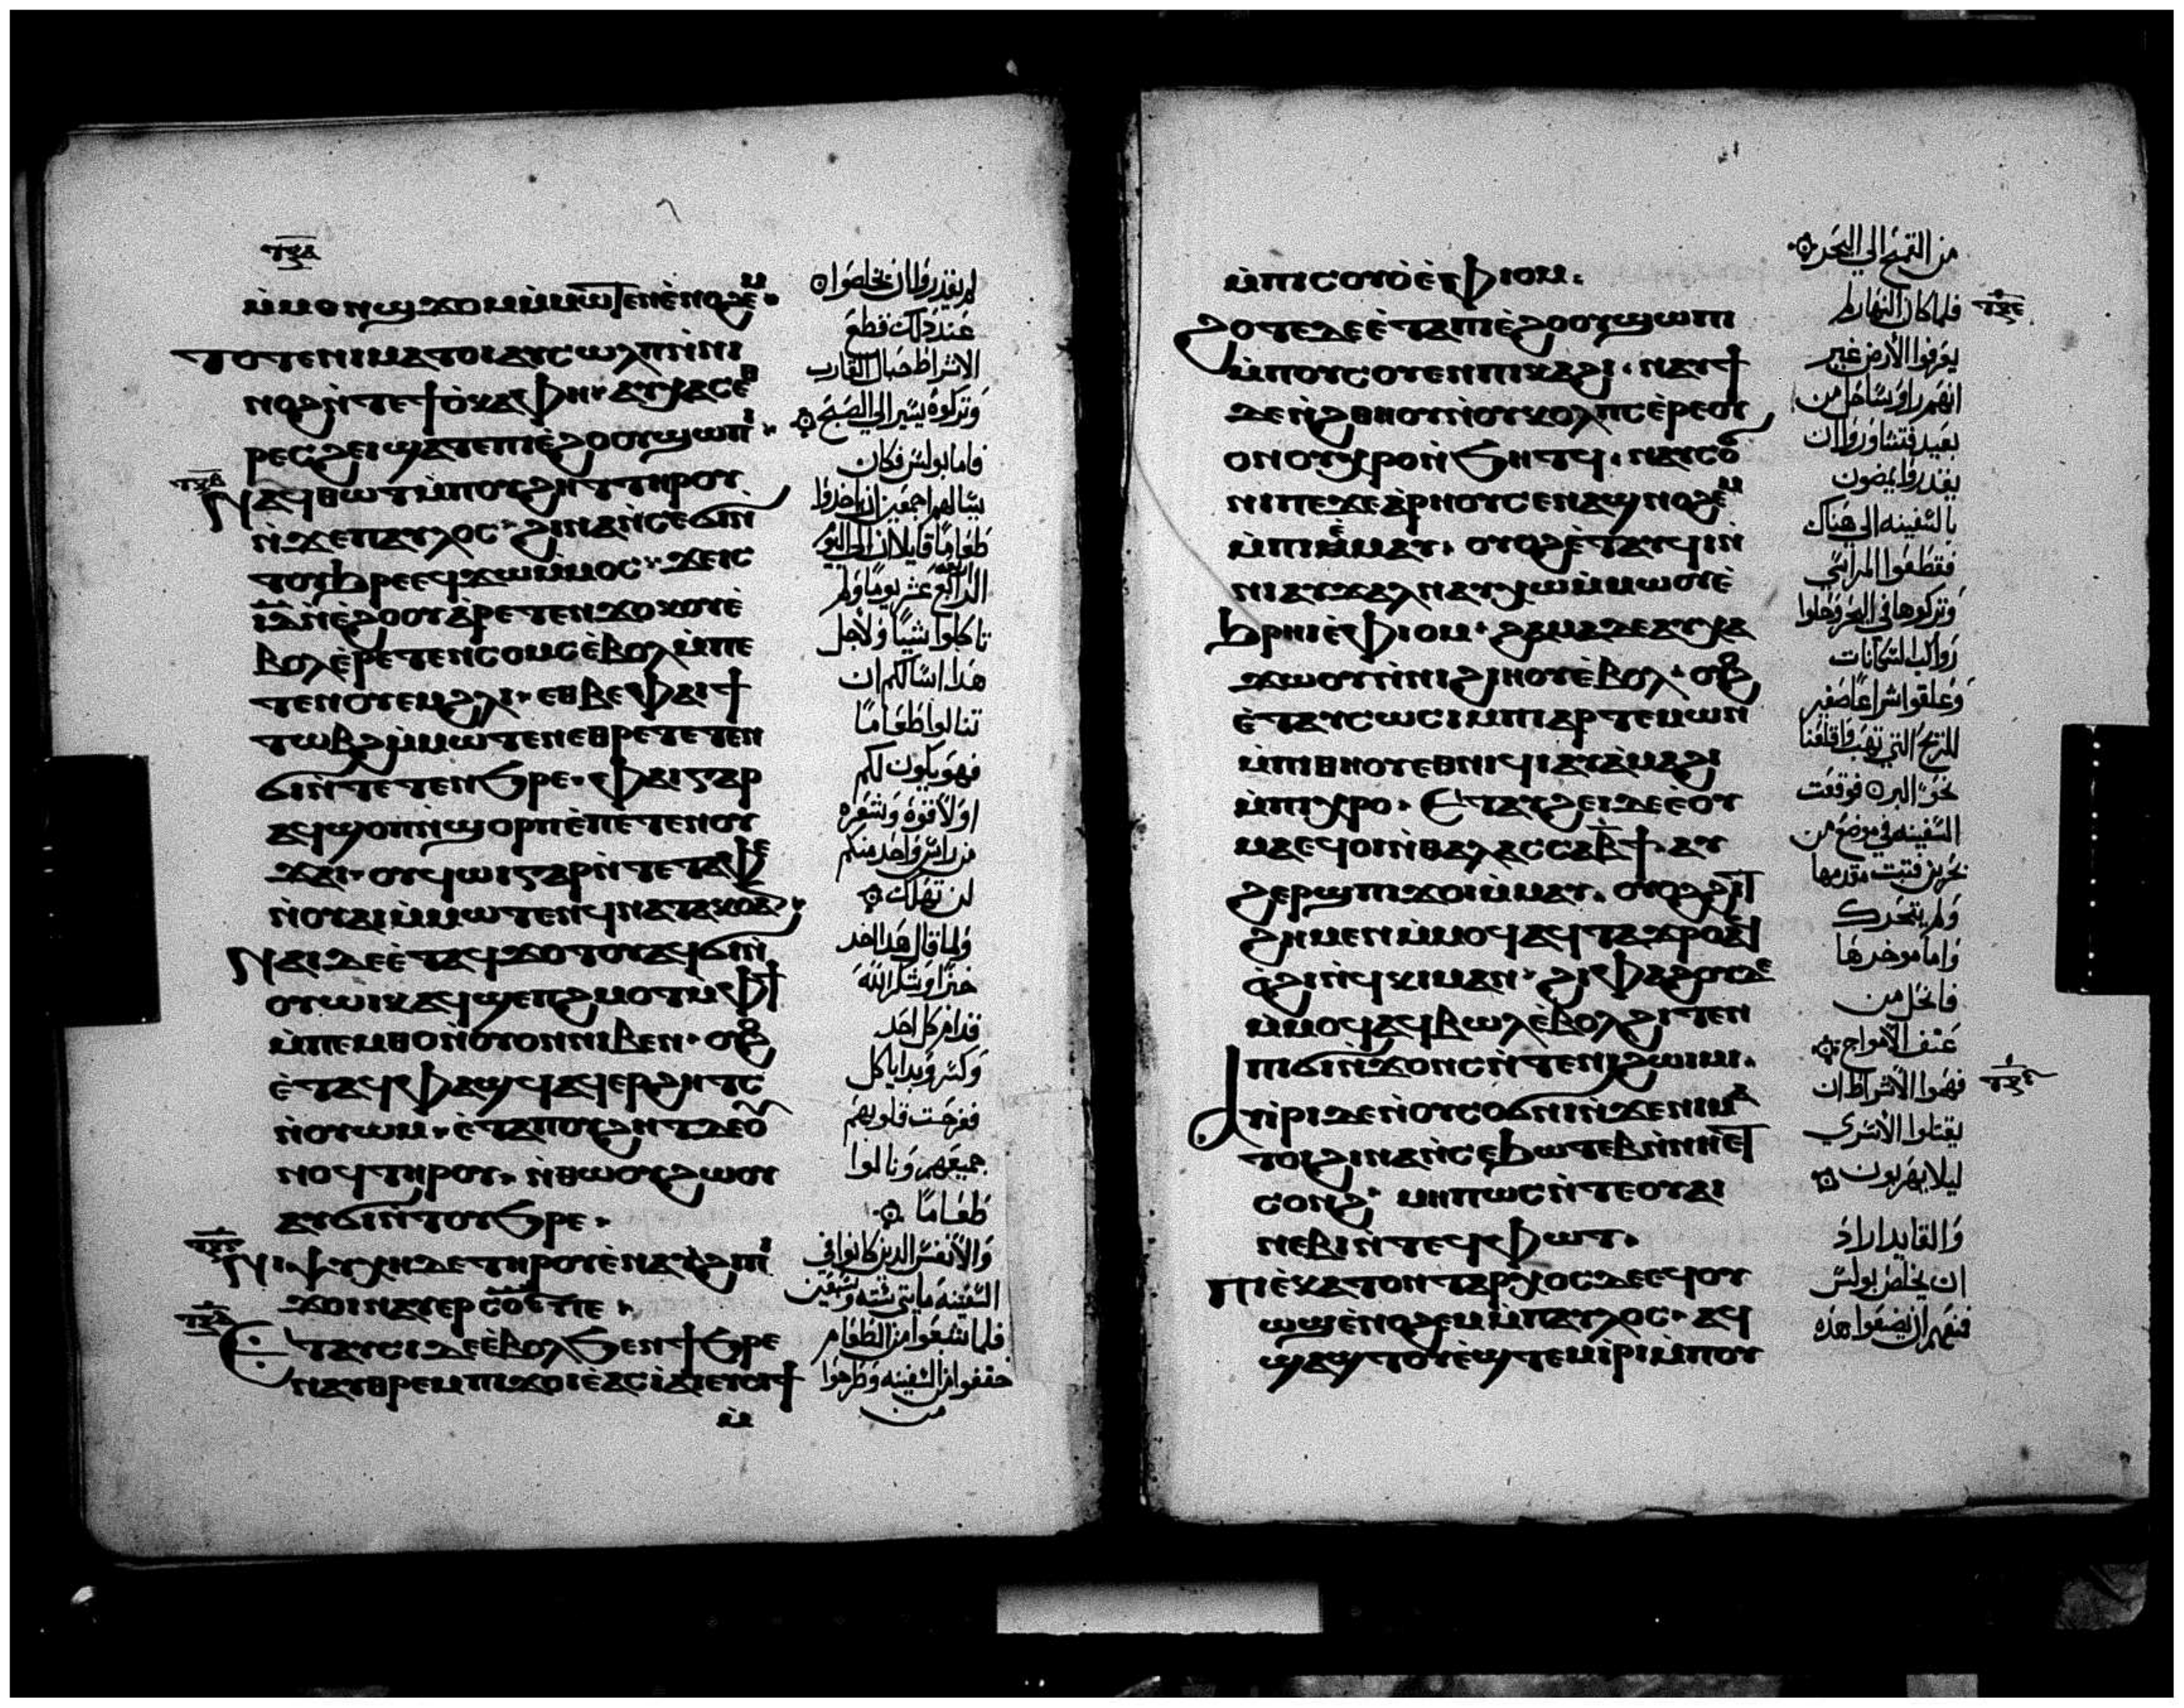 ⲙ̇ⲙⲟⲛϣϫⲟⲙⲙ̇ⲙⲱⲧⲉⲛⲉ̇ⲛⲟϩⲉⲙ
ⲧⲟⲧⲉⲛⲓⲙⲁⲧⲟⲓⲁⲩⲥⲱⲗⲡⲛ̇ⲛⲓ
ⲛⲟϩⲛ̇ⲧⲉϯⲟ̇ⲕⲁⲫⲏ·ⲁⲩⲭⲁⲥⲉⲑ
ⲣⲉⲥϩⲉⲓϣⲁⲧⲉⲡⲓⲉ̇ϩⲟⲟⲩϣⲱⲡⲓ·
ⲛⲁϥⲑⲱⲧⲙ̇ⲡⲟⲩϩⲏⲧⲧⲏⲣⲟⲩ
ⲛ̇ϫⲉⲡⲁⲩⲗⲟⲥ·ϩⲓⲛⲁⲛ̇ⲥⲉϭⲓⲛ̇
ⲧⲟⲩϧⲣⲉⲉϥϫⲱⲙ̇ⲙⲟⲥ·ϫⲉⲓⲥ
ⲓ̅ⲇ̅ⲛ̇ⲉ̇ϩⲟⲟⲩⲁ̇ⲣⲉⲧⲉⲛϫⲟⲕⲟⲩⲉ̇
ⲃⲟⲗⲉ̇ⲣⲉⲧⲉⲛⲥⲟⲙⲥⲉ̇ⲃⲟⲗⲙ̇ⲡⲉ
ⲧⲉⲛⲟⲩⲉⲙϩⲗⲓ·ⲉⲑⲃⲉⲫⲁⲓϯ
ⲧⲱⲃϩⲙ̇ⲙⲱⲧⲉⲛⲉⲑⲣⲉⲧⲉⲧⲉⲛ
ϭⲓⲛ̇ⲧⲉⲧⲉⲛϧⲣⲉ·ⲫⲁⲓⲅⲁⲣ
ⲁϥϣⲟⲡⲛ̇ϣⲟⲣⲡⲉ̇ⲡⲉⲧⲉⲛⲟⲩ
ϫⲁⲓ·ⲟⲩϥⲱⲓⲅⲁⲣⲛ̇ⲧⲉⲧⲁⲫⲉ
ⲛ̇ⲟⲩⲁⲓⲙ̇ⲙⲱⲧⲉⲛϥⲛⲁⲧⲁⲕⲟⲁⲛ·
ⲛⲁⲓⲇⲉⲉ̇ⲧⲁϥϫⲟⲧⲟⲩⲁϥϭⲓⲛ̇
ⲟⲩⲱⲓⲕⲁϥϣⲉⲡϩⲙⲟⲧⲙ̇ⲫϯ
ⲙ̇ⲡⲉⲙⲑⲟⲛ̇ⲟⲩⲟⲛⲛⲓⲃⲉⲛ·ⲟⲩⲟϩ
ⲉ̇ⲧⲁϥⲫⲁϣϥⲁϥⲉⲣϩⲏⲧⲥ
ⲛ̇ⲟⲩⲱⲙ·ⲉ̇ⲧⲁⲡⲟⲩϩⲏⲧⲇⲉⲟⲩ
ⲛⲟϥⲧⲏⲣⲟⲩ·ⲛ̇ⲑⲱⲟⲩϩⲱⲟⲩ
ⲁⲩϭⲓⲛ̇ⲧⲟⲩϧⲣⲉ·
ⲛⲓⲯⲩⲭⲏⲇⲉⲧⲏⲣⲟⲩⲉ̇ⲛⲁⲩϩⲓⲡⲓ
ϫⲟⲓⲛⲁⲩⲉⲣⲥⲟ̅ⲉ̅ⲡⲉ·
ⲉⲧⲁⲩⲥⲓⲇⲉⲉ̇ⲃⲟⲗϧⲉⲛϯϧⲣⲉ
ⲛⲁⲩⲑⲣⲉⲙⲡⲓϫⲟⲓⲉ̇ⲁⲥⲓⲁⲓⲉⲩϩⲓⲟⲩⲓ̇
ⲙ̇
لم تقدروا ان تخلصوا
عند ذلك قطع
الاشراط حبال القارب
وتركوه يسير الي الصبح
فاما بولس فكان
يسالهم اجمعين ان ياخذوا
طعاما قايلا ان الي اليوم
الرابع عشر يوما ولم
تاكلوا شيا ولاجل
هذا اسالكم ان
تنالوا طعاما
فهو يكون لكم
اولا قوة وشعره
من راس واحد منكم
لن تهلك
ولما قال هذا اخذ
خبزا وشكر الله
قدام كل احد
وكسر وبدا ياكل
ففرحت قلوبهم
جميعهم ونالوا
طعاما
والانفس الذين كانوا في
السفينه مايتي سته وسبعين
فلما شبعوا من الطعام
خففوا من السفينه وطرحوا
من
ⲙ̇ⲡⲓⲥⲟⲩⲟ̇ⲉ̇ⲫⲓⲟⲙ·
ϩⲟⲧⲉⲇⲉⲉ̇ⲧⲁⲡⲓⲉ̇ϩⲟⲟⲩϣⲱⲡⲓ
ⲙ̇ⲡⲟⲩⲥⲟⲩⲉⲛⲡⲓⲕⲁϩⲓ·ⲛⲁⲩϯ
ⲇⲉⲛ̇ϩⲑⲏⲟⲩⲛ̇ⲟⲩⲕⲟⲗⲡⲥⲉ̇ⲣⲉⲟⲩ
ⲟⲛⲟⲩⲭⲣⲟⲛ̇ϧⲏⲧϥ·ⲛⲁⲩⲥⲟϭ
ⲛⲓⲡⲉϫⲉⲁ̇ⲣⲏⲟⲩⲥⲉⲛⲁϣⲛⲟϩⲉⲙ
ⲙ̇ⲡⲓϫⲟⲓⲉ̇ⲙⲁⲩ·ⲟⲩⲟϩⲉ̇ⲧⲁⲩϥⲓⲛ̇
ⲛⲓⲁⲩϫⲁⲗⲛⲁⲩⲭⲱⲙ̇ⲙⲱⲟⲩⲉ̇
ϧⲣⲏⲓⲉ̇ⲫⲓⲟⲙ·ϩⲁⲙⲁⲇⲉⲁⲩⲭⲁ
ϫⲱⲟⲩⲛ̇ⲛⲓϩⲓⲏⲟⲩⲉ̇ⲃⲟⲗ·ⲟⲩⲟϩ
ⲉ̇ⲧⲁⲩⲥⲱⲥⲓⲙ̇ⲡⲓⲁⲣⲧⲉⲙⲱⲛ
ⲙ̇ⲡⲓⲑⲏⲟⲩⲉⲑⲛⲓϥⲓⲁⲩⲁ̇ⲙⲁϩⲓ
ⲙ̇ⲡⲓⲭⲣⲟ·ⲉⲧⲁⲩϩⲉⲓⲇⲉⲉ̇ⲟⲩ
ⲙⲁⲉϥⲟⲓⲛ̇ⲑⲁⲗⲁⲥⲥⲁⲃ̅ϯ·ⲁⲩ
ϩⲉⲣϣⲡⲓϫⲟⲓⲙ̇ⲙⲁⲩ·ⲟⲩⲟϩϩⲓⲧ
ϩⲏⲙⲉⲛⲙ̇ⲙⲟϥⲁϥⲧⲁϫⲣⲟⲁϥ
ⲟ̇ϩⲓⲛ̇ϥⲕⲓⲙⲁⲛ·ϩⲓⲫⲁϩⲟⲩⲇⲉ
ⲙ̇ⲙⲟϥⲁϥⲃⲱⲗⲉ̇ⲃⲟⲗϩⲓⲧⲉⲛ
ⲡⲓϭⲓⲛ̇ϫⲟⲛⲥⲛ̇ⲧⲉⲛⲓϩⲱⲓⲙⲓ·
ⲁⲩⲓ̇ⲣⲓⲇⲉⲛ̇ⲟⲩⲥⲟϭⲛⲓⲛ̇ϫⲉⲛⲓⲙⲁ
ⲧⲟⲓϩⲓⲛⲁⲛ̇ⲥⲉϧⲱⲧⲉⲃⲛ̇ⲛⲏⲉⲧ
ⲥⲟⲛϩ·ⲙⲏⲡⲱⲥⲛ̇ⲧⲉⲟⲩⲁⲓ
ⲛⲉⲃⲓⲛ̇ⲧⲉϥⲫⲱⲧ·
ⲡⲓⲉ̇ⲕⲁⲧⲟⲛⲧⲁⲣⲭⲟⲥⲇⲉⲉϥⲟⲩ
ⲱϣⲉ̇ⲛⲟϩⲉⲙⲙ̇ⲡⲁⲩⲗⲟⲥ·ⲁϥ
ϣⲁϣⲧⲟⲩⲉ̇ϣⲧⲉⲙⲓ̇ⲣⲓⲙ̇ⲡⲟⲩ
من القمح الي البحر
فلما كان النهار لم
يعرفوا الارض غير
انهم راوا ساحل من
بعيد فتشاوروا ان
يقدروا يمضون
بالسفينه الي هناك
فقطعوا المراسي
وتركوها في البحر وحلوا
رواكب السكانات
وعلقوا شراعا صغير
للريح التي تهب واقلعنا
نحو البر فوقعت
السفينه في موضع من
بحرين فتبت مقدمها
ولم يتحرك
واما موخرها
فانحل من
عنف الامواج
فهموا الاشراط ان
يقتلوا الاسري
ليلا يهربون
والقايد اراد
ان يخلص بولس
فمنعهم ان يصنعوا هذه